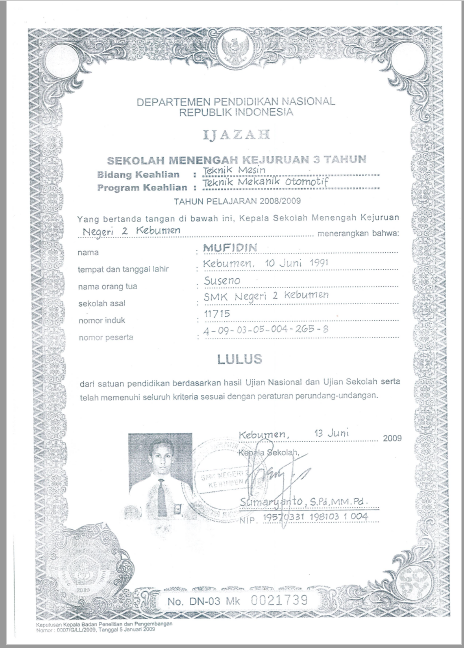 DEPARTEMEN PENDIDIKAN NASIONAL
REPUBLIK INDONESIA
IJAZAH
SEKOLAH MENENGAH KEJURUAN 3 TAHUN
Bidang Keahlian : Teknik Mesin
Program Keahlian : Teknik Mekanik Otomotif
TAHUN PELAJARAN 2008/2009
Yang bertanda tangan di bawah ini, Kepala Sekolah Menengah Kejuruan
Negeri 2 Kebumen menerangkan bahwa:
nama : MUFIDIN
tempat dan tanggal lahir : Kebumen, 10 Juni 1991
nama orang tua : Suseno
sekolah asal : SMK Negeri 2 Kebumen
nomor induk : 11715
nomor peserta : 4-09-03-05-004-265-8
LULUS
dari satuan pendidikan berdasarkan hasil Ujian Nasional dan Ujian Sekolah serta
telah memenuhi seluruh kriteria sesuai dengan peraturan perundang-undangan.
Kebumen, 13 Juni 2009
Kepala Sekolah,
SMK NEGERI 2
KEBUMEN
Sumaryanto, S.Pd,MM.Pd.
NIP. 19570331 198103 1 004
No. DN-03 Mk 0021739
Keputusan Kepala Badan Penelitian dan Pengembangan
Nomor : /2009, Tanggal 5 Januari 2009